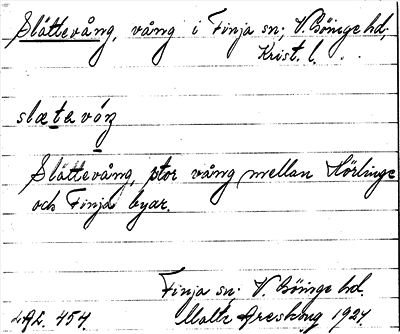 Slättevång, vång i Finja sn, V. Göinge hd,
Krist. l.
slæte vóŋ
Slättevång, stor vång mellan Hörlinge
och Finja byar.
Finja sn. V. Göinge hd.
LAL. 454. Malte Areskog 1924.